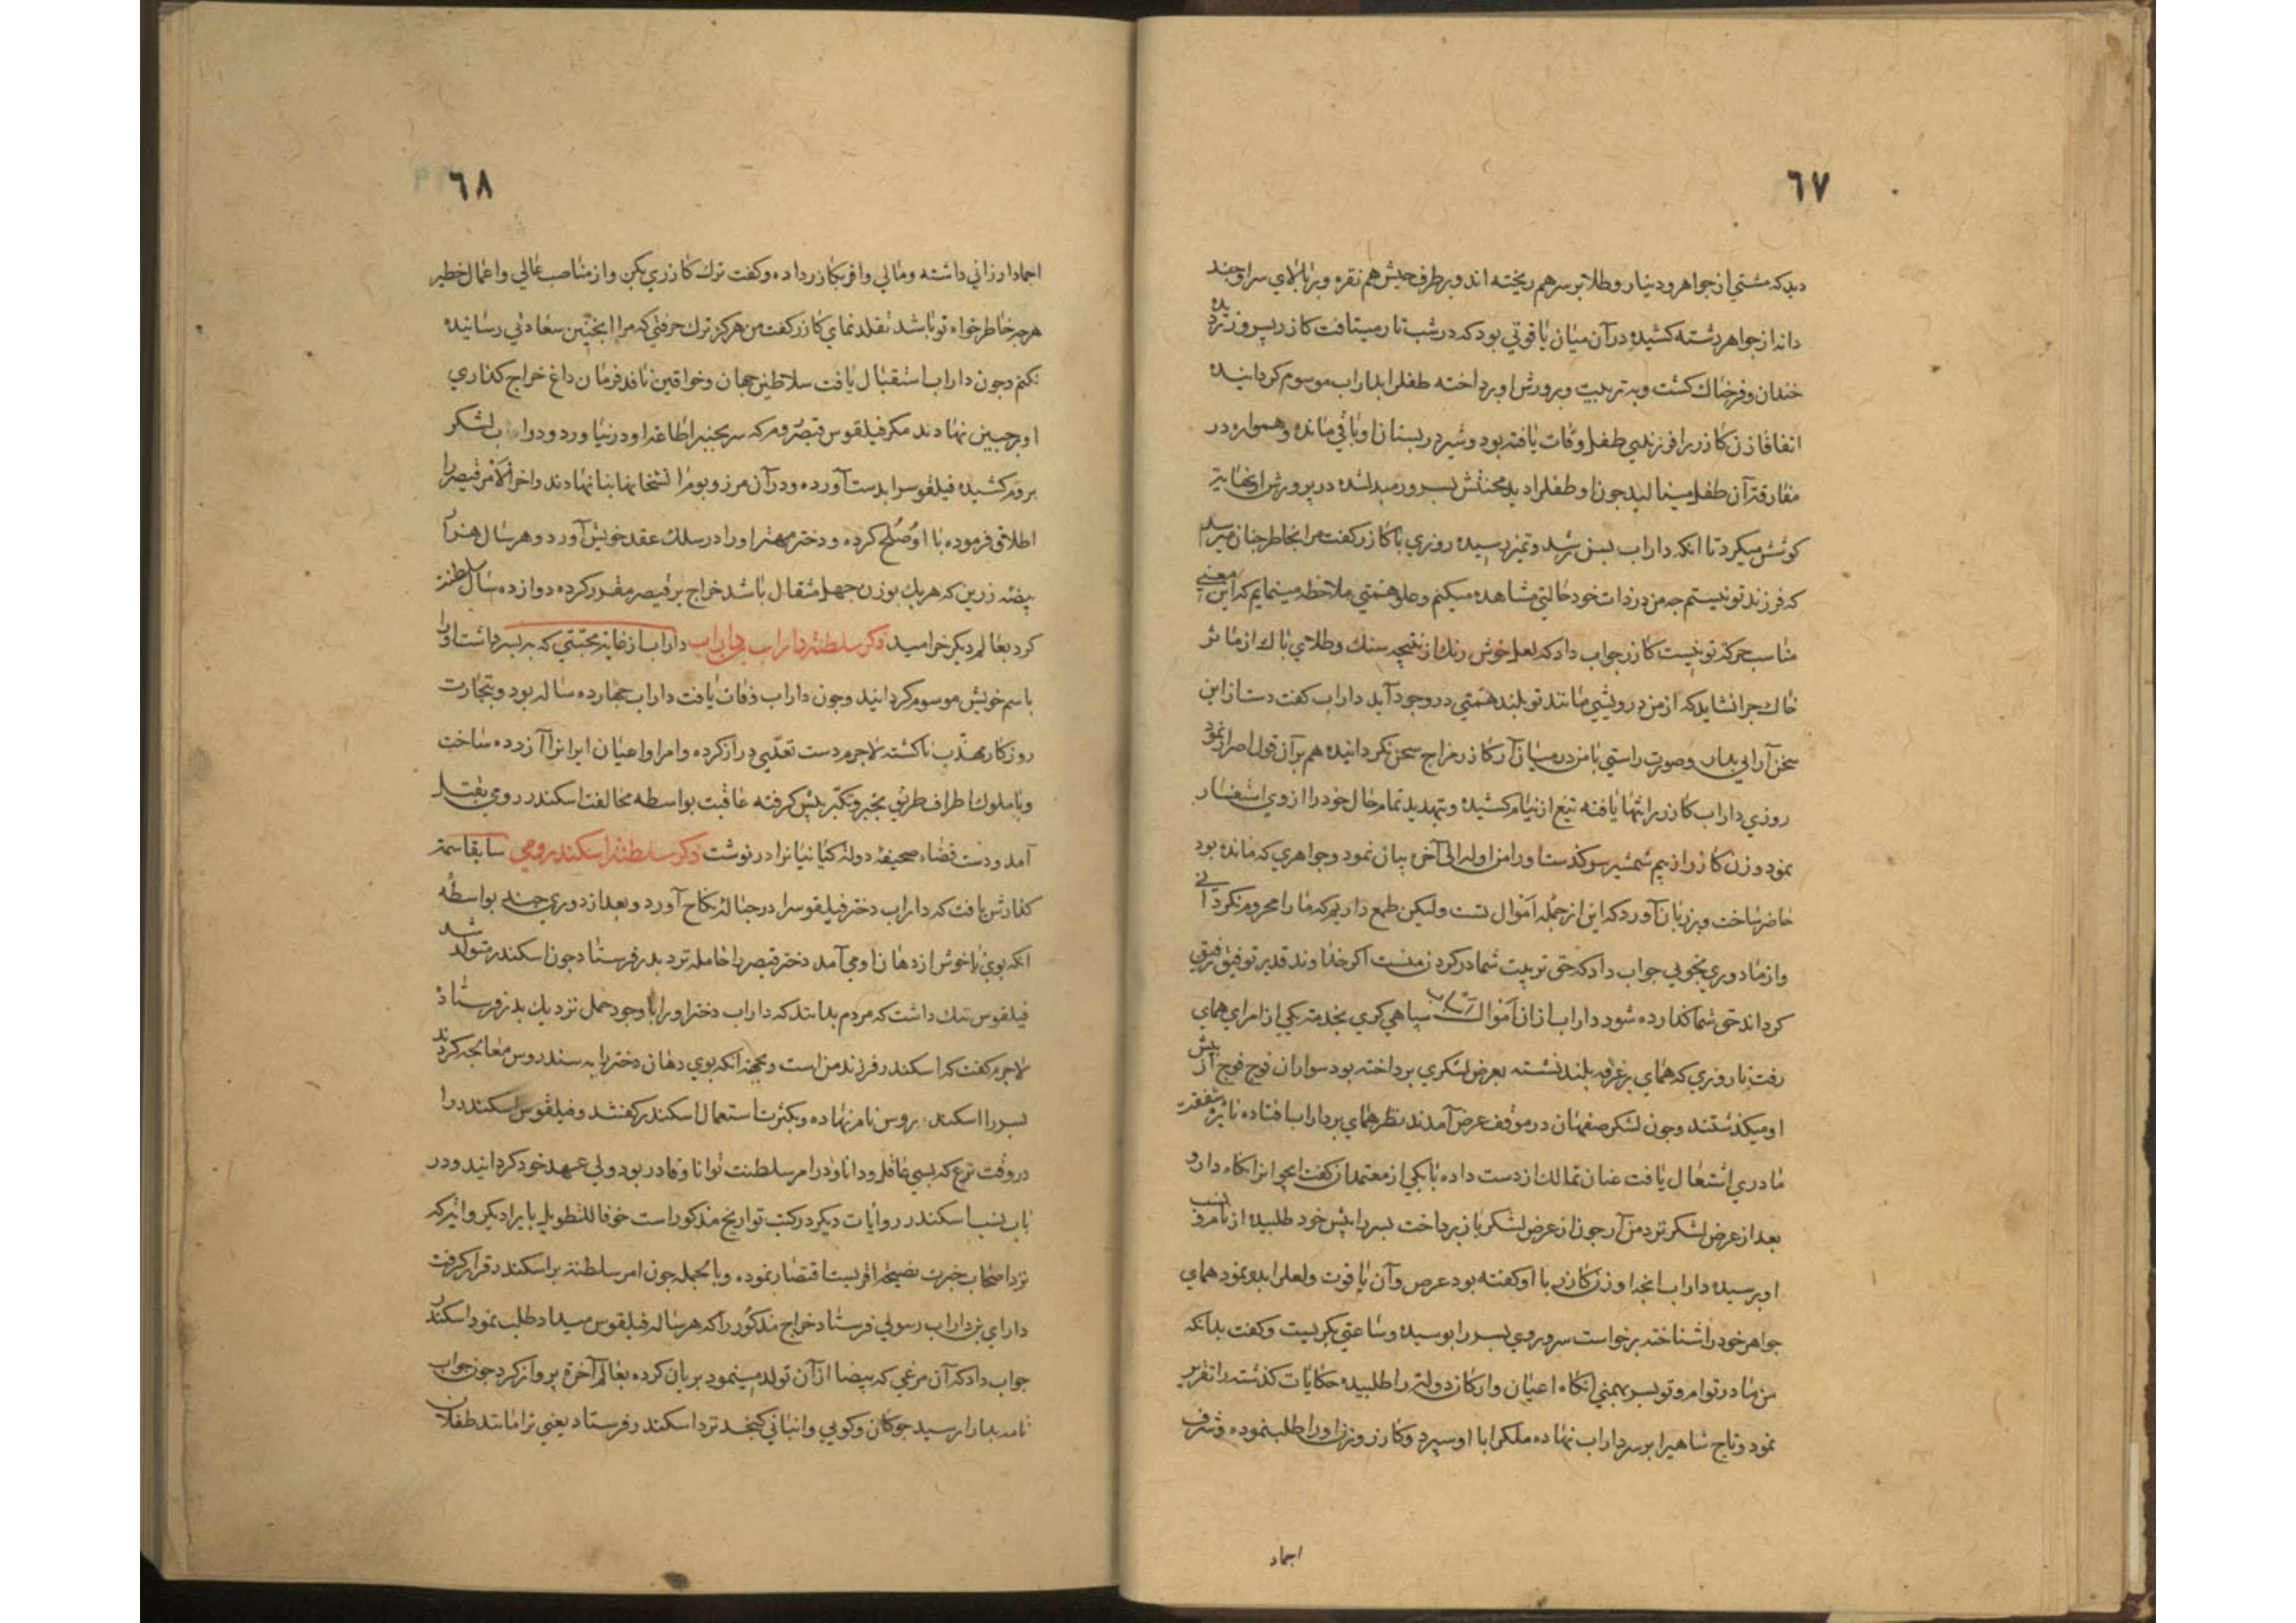 ٦٧
ديد كه مشتي از جواهر و دينار و طلا بر سر هم ريخته اند و بر طرف حبيش هم نقره و بر بالاي سر او چند
دانه از جواهر رشته كشيده در آن ميان ياقوتي بود كه در شب تار ميتافت كازر پس
خندان و فرحناك كشت و به تربيت و پرورش او پرداخته طفل را بداراب موسوم كردانيده
اتفاقا زن كازر را فرزندي طفل وفات يافته بود و شير در پستان او باقي مانده و همواره در
مفارقة آن طفل ميناليد چون او طفل را ديد محنتش بسرور مبدل شده در پرورش او نهاية
كوشش ميكرد تا انكه داراب بسن رشد و تميز رسيده روزي با كازر كفت مرا بخاطر چنان ميرسد
كه فرزند تو نيستم چه من در ذات خود حالتي مشاهده ميكنم و علو همتي ملاحظه مينمايم كه اين معني
مناسب حركة تو نيست كازر جواب داد كه لعل خوش رنك از نتيجه سنك و طلاي پاك از مآثر
خاك چرا نشايد كه از من درويشي مانند تو بلند همتي در وجود آيد داراب كفت دست از اين
سخن آرايي بدار و صورت راستي با من در ميان آر كازر مزاج سخن نكردانيده هم بر آن قول اصرار نمود
روزي داراب كازر را تنها يافته تيغ از نيام كشيده و بتهديد تمام حال خود را از وي استفسار
نمود و زن كازر از بيم شمشير سوكند او را من اوله الى آخره بيان نمود و جواهري كه مانده بود
حاضر ساخت و بر زبان آورد كه اين از جمله اموال تست وليكن طمع داريم كه ما را محروم نكرداني
و از ما دوري نجويي جواب داد كه حق تربيت شما در كردن منست اكر خداوند قدير توفيق رفيق
كرداند حق شما كذارده شود داراب از آن اموال اسباب سپاهي كري بخدمة يكي از امراي هماي
رفت تا روزي كه هماي بر غرفه بلند نشسته بعرض لشكري پرداخته بود سواران فوج فوج از پيش
او ميكذشتند و چون لشكر صفهان در موقف عرض آمدند نظر هماي بر داراب افتاده نايره شفقت
مادري اشتعال يافت عنان تمالك از دست داده با يكي از معتمدان كفت اين جوانرا نكاه دار و
بعد از عرض لشكر نزد من آر چون از عرض لشكر باز پرداخت پسر را پيش خود طلبيده از نام و نسب
او پرسيده داراب انچه از زن كازر با او كفته بود عرض و آن ياقوت و لعل را بدو نمود هماي
جواهر خود را شناخته برخواست سر و روي پسر را بوسيده و ساعتي بكريست و كفت بدانكه
من مادر توام و تو پسر بهمني انكاه اعيان و اركان دولة را طلبيده حكايات كذشته را تقرير
نمود و تاج شاهي را بر سر داراب نهاده ملك را با او سپرد و كازر و زن او را طلب نموده و شرف
اجماد
٦٨
اجماد ارزاني داشته و مالي وافر بكازر داده و كفت ترك كازري بكن و از مناصب عالي و اعمال خطير
هر چه خاطر خواه تو باشد تقلد نماي كازر كفت من هركز ترك حرفتي كه مرا اينچنين سعادتي رسانيده
نكنم و چون داراب استقبال يافت سلاطين جهان و خواقين نافذ فرمان داغ خراج كذاري
او بر جبين نهادند مكر فيلقوس قيصر روم كه سر بچنبر اطاعة او در نياورد و داراب لشكر
بروم كشيده فيلقوس را بدست آورده و در آن مرز و بوم آتشخانها بنا نهادند و اخر الامر قيصر را
اطلاق فرموده با او صلح كرده و دختر مهتر او را در سلك عقد خويش آورد و هر سال هزار
بيضه زرين كه هر يك بوزن چهل مثقال باشد خراج بر قيصر مقرر كرده دوازده سال سلطنة
كرد بعالم ديكر خراميد ذكر سلطنة داراب بن داراب داراب از غاية محبتي كه به پسر داشت او را
باسم خويش موسوم كردانيد و چون داراب وفات يافت داراب چهارده ساله بود و بتجارت
روزكار مهذب ناكشته لاجرم دست تعدي دراز كرده و امرا و اعيان ايرانرا آزرده ساخت
و با ملوك اطراف طريق تجبر و تكبر پيش كرفته عاقبت بواسطه مخالفت اسكندر رومي بقتل
آمد و دست قضا صحيفه دولة كيانيانرا در نوشت ذكر سلطنة اسكندر رومي سابقا سمة
كذارش يافت كه داراب دختر فيلقوس را در حباله نكاح آورد و بعد از دوري چند بواسطه
انكه بوي ناخوش از دهان او مي آمد دختر قيصر را حامله نزد پدر فرستاد چون اسكندر متولد شد
فيلقوس ننك داشت كه مردم بدانند كه داراب دختر او را با وجود حمل نزديك پدر فرستاده
لاجرم كفت كه اسكندر فرزند من است و بجهة انكه بوي دهان دختر را به سندروس معالجه كردند
پسر را اسكندروس نام نهاده و بكثرت استعمال اسكندر كفتند و فيلقوس اسكندر را
در وقت نزع كه بسي عاقل و دانا و در امر سلطنت توانا و قادر بود ولي عهد خود كردانيد و در
باب نسب اسكندر روايات ديكر در كتب تواريخ مذكور است خوفا للتطويل بايراد يكي و اثر كه
نزد اصحاب خبرت بصحة اقربست اقتصار نموده و بالجمله چون امر سلطنة بر اسكندر قرار كرفت
داراي بن داراب رسولي فرستاد خراج مذكور را كه هر ساله فيلقوس ميداد طلب نمود اسكندر
جواب داد كه آن مرغي كه بيضا از آن تولد مينمود بريان كرده بعالم آخرة پرواز كرد چون جواب
نامه بدارا رسيد چوكان و كويي و انباني كنجد نزد اسكندر فرستاد يعني ترا مانند طفلان